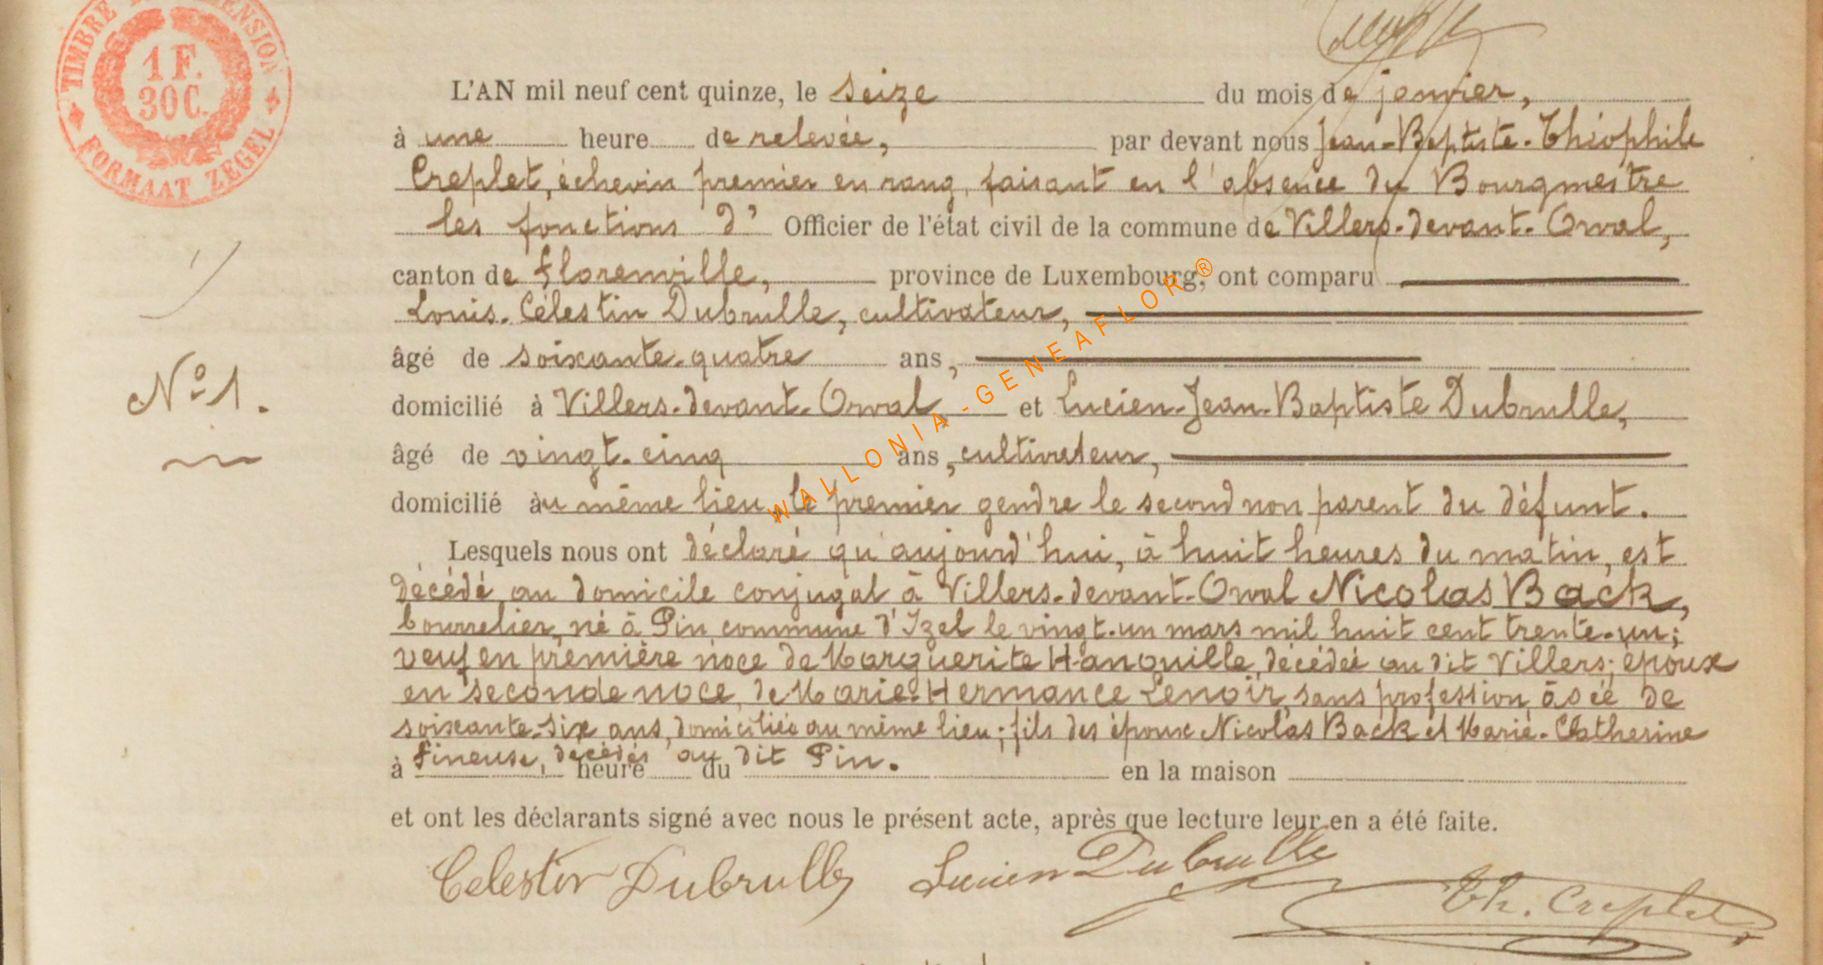 TIMBRE DIMENSION
1 F.
30 C.
FORMAAT ZEGEL
L'AN mil neuf cent quinze, le seize du mois de janvier,
à une heure de relevée, par devant nous Jean-Baptiste-Théophile
Creplet, échevin premier en rang, faisant en l'absence du Bourgmestre
les fonctions d' Officier de l'état civil de la commune de Villers-devant-Orval,
canton de Florenville, province de Luxembourg, ont comparu
Louis-Célestin Dubrulle, cultivateur,
âgé de soixante-quatre ans,
Nº 1.
domicilié à Villers-devant-Orval, et Lucien-Jean-Baptiste Dubrulle,
âgé de vingt-cinq ans, cultivateur,
domicilié au même lieu, le premier gendre le second non parent du défunt.
Lesquels nous ont déclaré qu'aujourd'hui, à huit heures du matin, est
décédé au domicile conjugal à Villers-devant-Orval Nicolas Back,
bourrelier, né à Pin, commune d'Izel le vingt-un mars mil huit cent trente-un;
veuf en première noce de Marguerite Hanouille, décédée au dit Villers; époux
en seconde noce de Marie-Hermance Lenoir, sans profession, âgée de
soixante-six ans, domiciliée au même lieu; fils des époux Nicolas Back et Marie-Catherine
Fineuse, décédés au dit Pin.
à heure du en la maison
et ont les déclarants signé avec nous le présent acte, après que lecture leur en a été faite.
Celestin Dubrulle Lucien Dubrulle Th. Creplet
WALLONIA-GENEAFLOR®